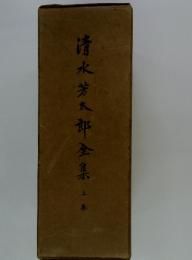 清水芳太郎全集
上巻